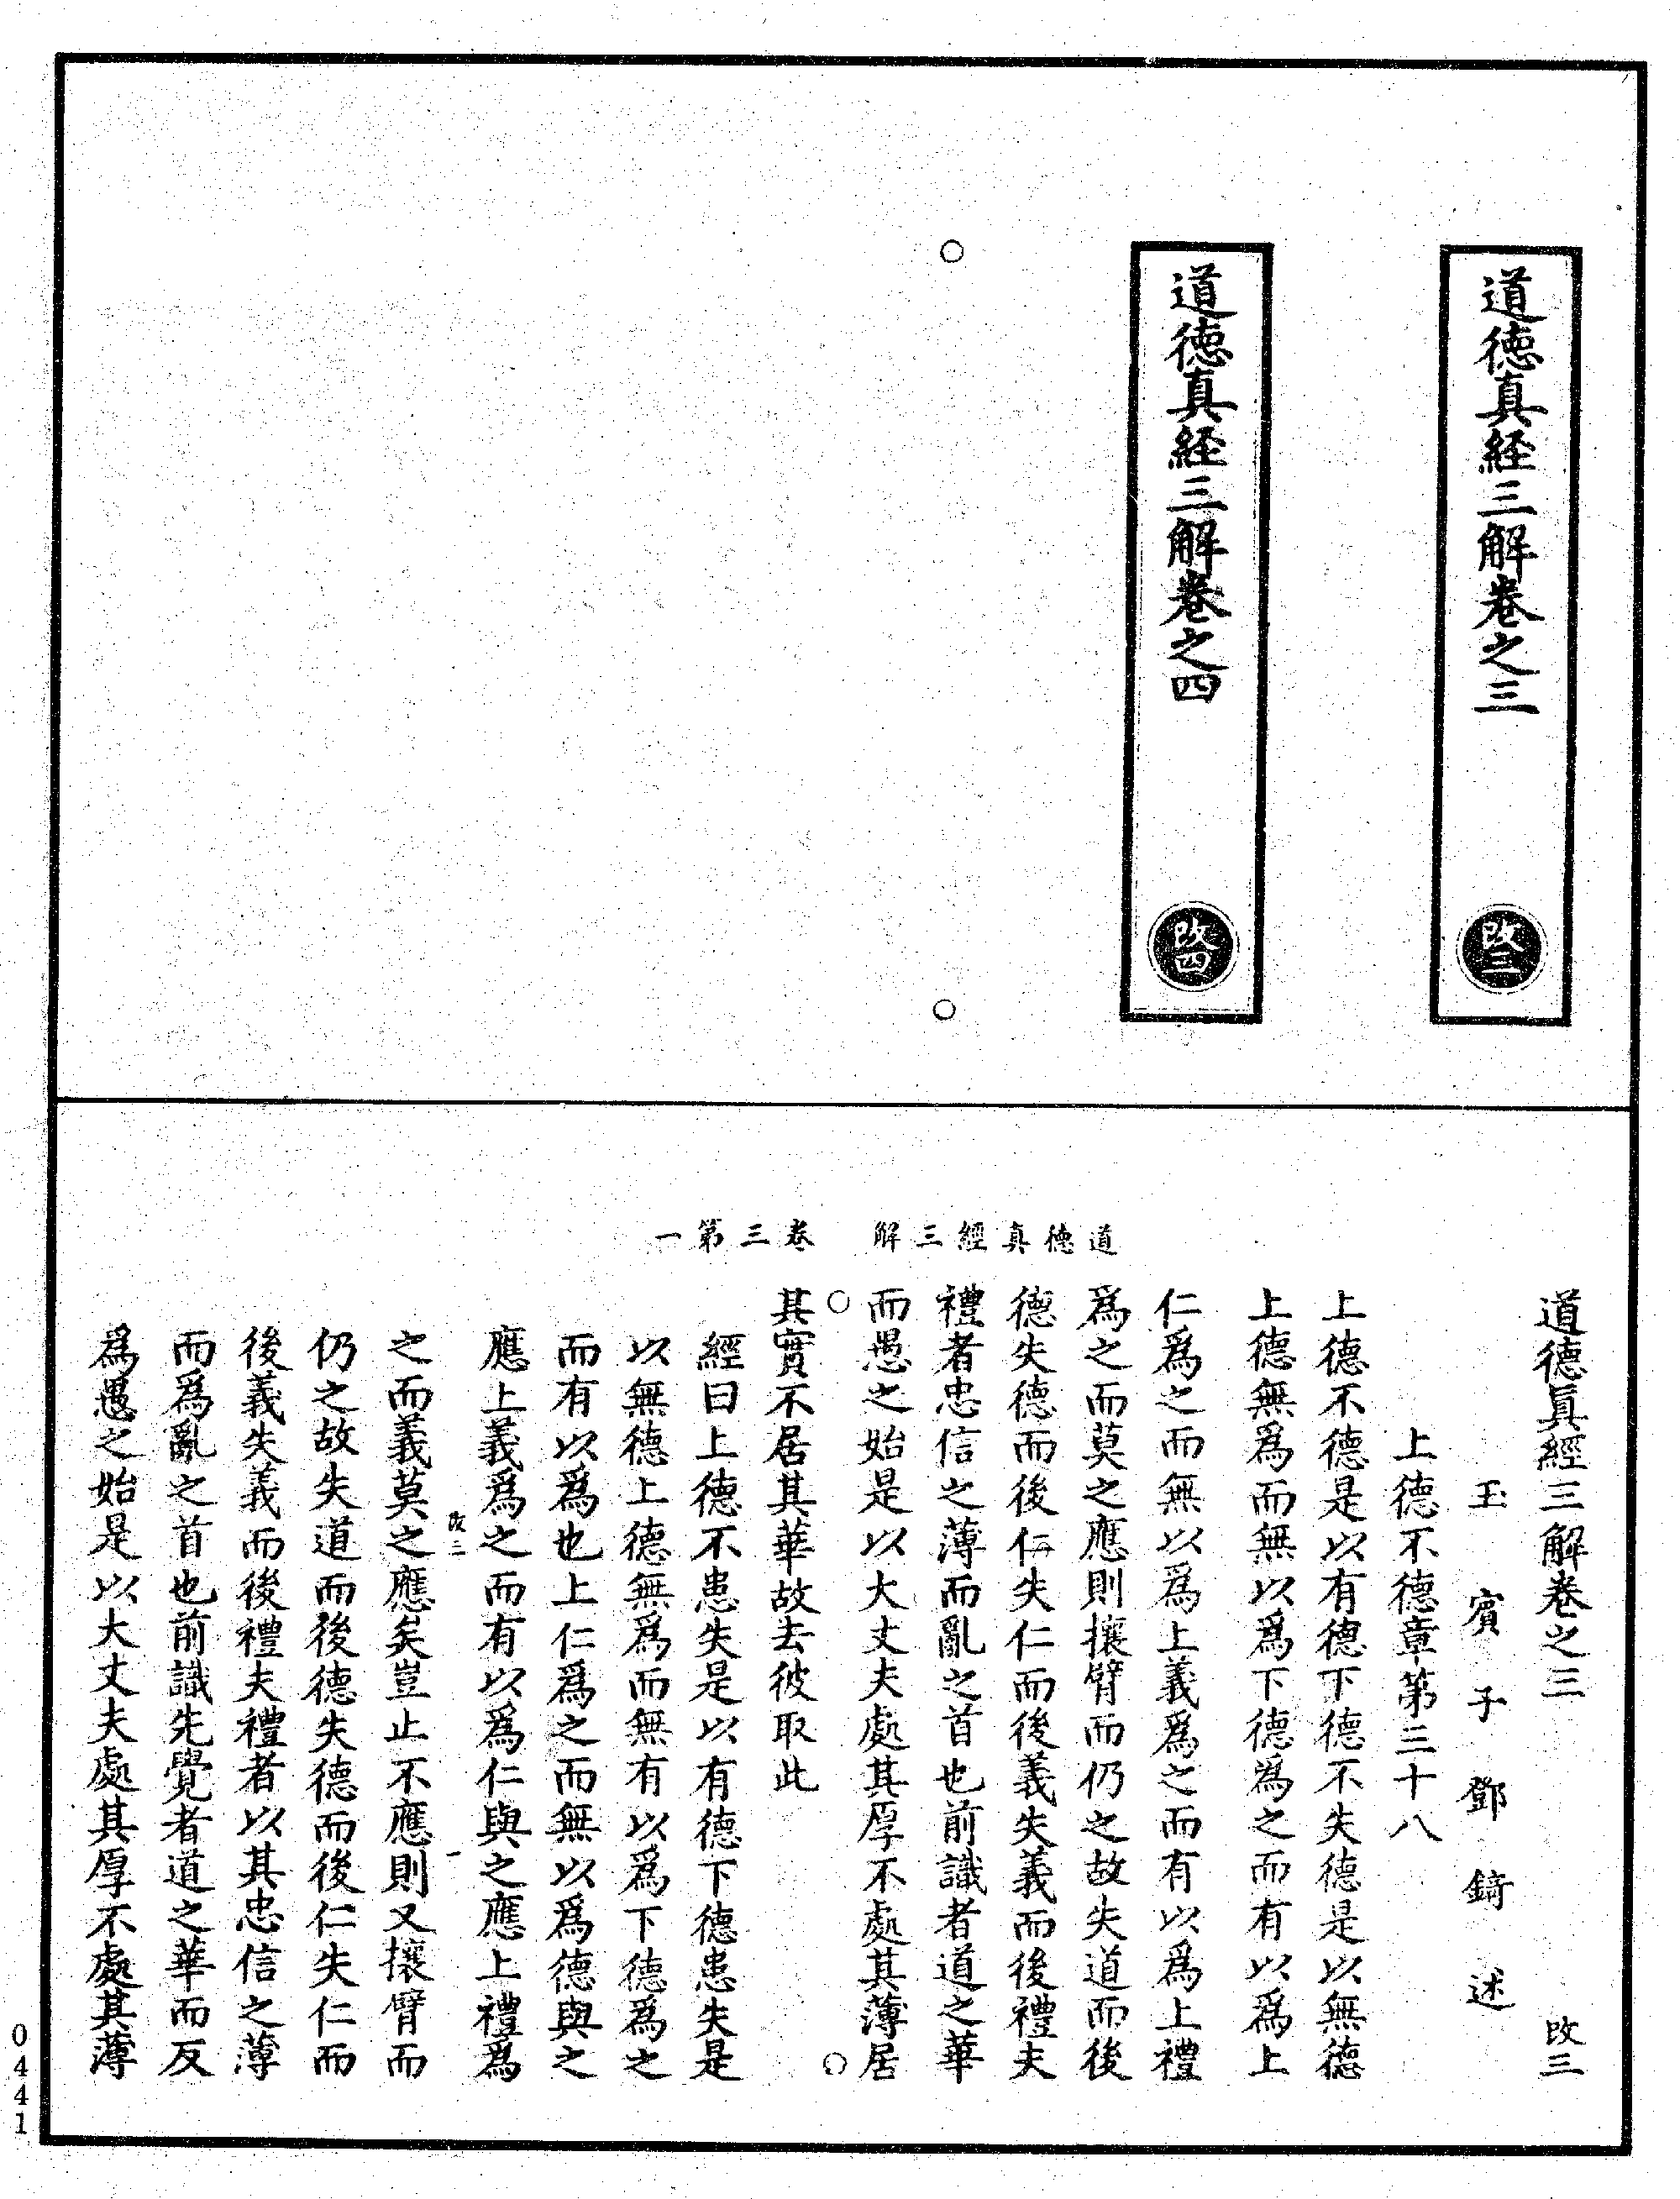 道德真経三解卷之三
改三
道德真経三解卷之四
改四
道德真經三解　卷三第一
道德眞經三解卷之三　改三
玉賓子鄧錡述
上德不德章第三十八
上德不德是以有德下德不失德是以無德
上德無爲而無以爲下德爲之而有以爲上
仁爲之而無以爲上義爲之而有以爲上禮
爲之而莫之應則攘臂而仍之故失道而後
德失德而後仁失仁而後義失義而後禮夫
禮者忠信之薄而亂之首也前識者道之華
而愚之始是以大丈夫處其厚不處其薄居
其實不居其華故去彼取此
經曰上德不患失是以有德下德患失是
以無德上德無爲而無有以爲下德爲之
而有以爲也上仁爲之而無以爲德與之
應上義爲之而有以爲仁與之應上禮爲
改三　一
之而義莫之應矣豈止不應則又攘臂而
仍之故失道而後德失德而後仁失仁而
後義失義而後禮夫禮者以其忠信之薄
而爲亂之首也前識先覺者道之華而反
爲愚之始是以大丈夫處其厚不處其薄
0441